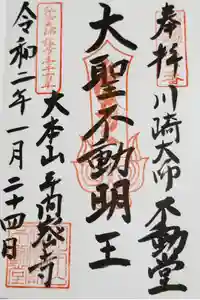 奉拝 川崎大師不動堂
大聖不動明王
大本山平間寺
令和二年一月二十四日